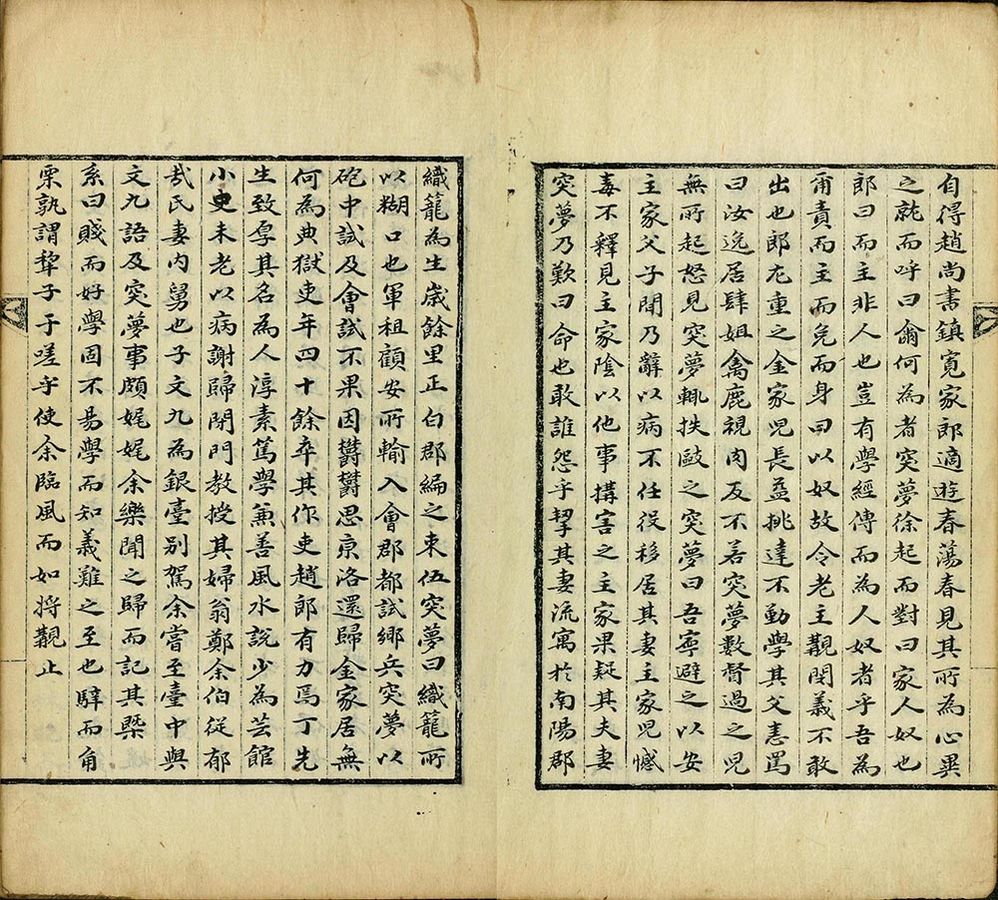 自得趙尚書鎮寛家郎適遊春蕩春見其所為心異
之就而呼曰爾何為者突夢徐起而對曰家人奴也
郎曰而主非人也豈有學經傳而為人奴者乎吾為
甭責而主而免而身曰以奴故令老主覯閔義不敢
出也郎尤重之金家児長益挑達不勤學其父恚罵
曰汝逸居肆姐禽鹿視肉反不若突夢數督過之児
無所起怒見突夢輒抶敺之突夢曰吾寧避之以安
主家父子聞乃辭以病不任役移居其妻主家児憾
毒不釋見主家陰以他事搆害之主家果疑其夫妻
突夢乃歎曰命也敢誰怨乎挈其妻流寓於南陽郡
織籠為生歲餘里正白郡編之束伍突夢曰織籠所
以糊口也軍租顧安所輸入會郡都試鄉兵突夢以
砲中試及會試不果因欝欝思京洛還歸金家居無
何為典獄吏年四十餘卒其作吏趙郎有力焉丁先
生致厚其名為人淳素篤學兼善風水說少為芸館
小史未老以病謝歸閉門教授其婦翁鄭余伯從郁
哉氏妻内舅也子文九為銀臺別駕余嘗至臺中與
文九語及突夢事頗娓娓余樂聞之歸而記其槩
系曰賤而好學固不易學而知義難之至也騂而角
栗孰謂犂子于嗟乎使余臨風而如將覯止